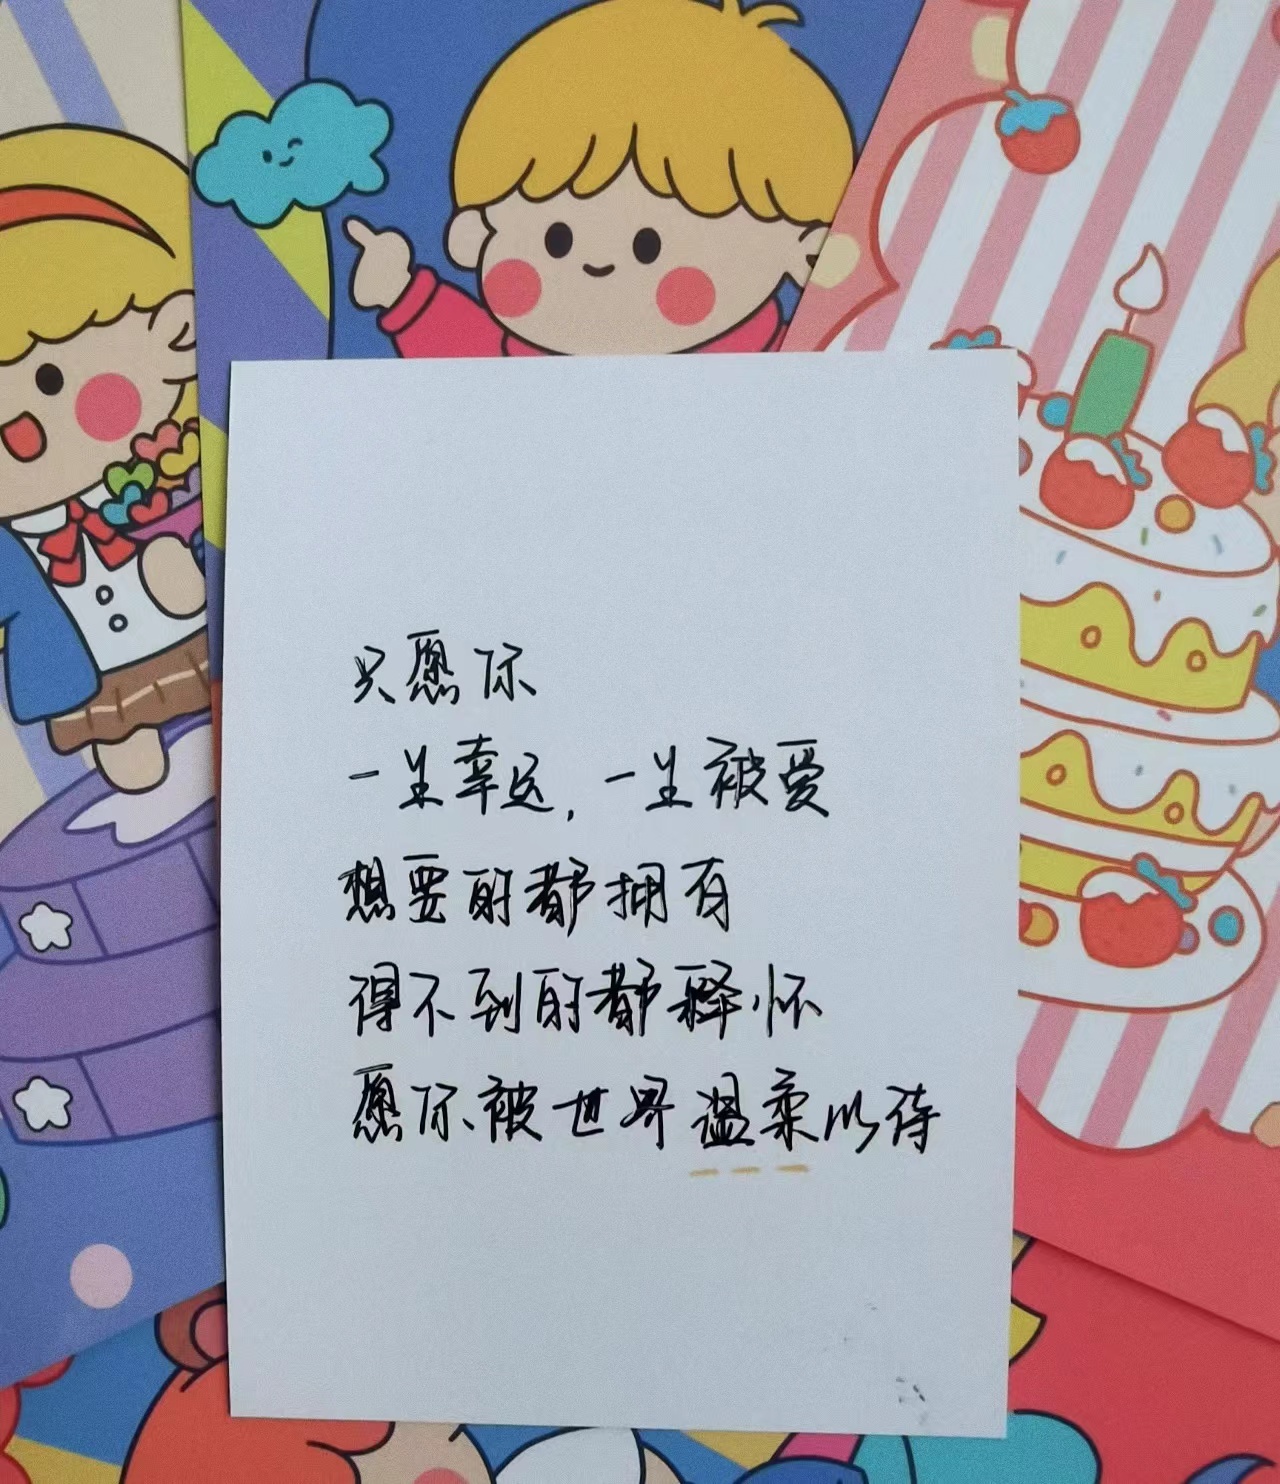 只愿你
一生幸运,一生被爱
想要的都拥有
得不到的都释怀
愿你被世界温柔以待